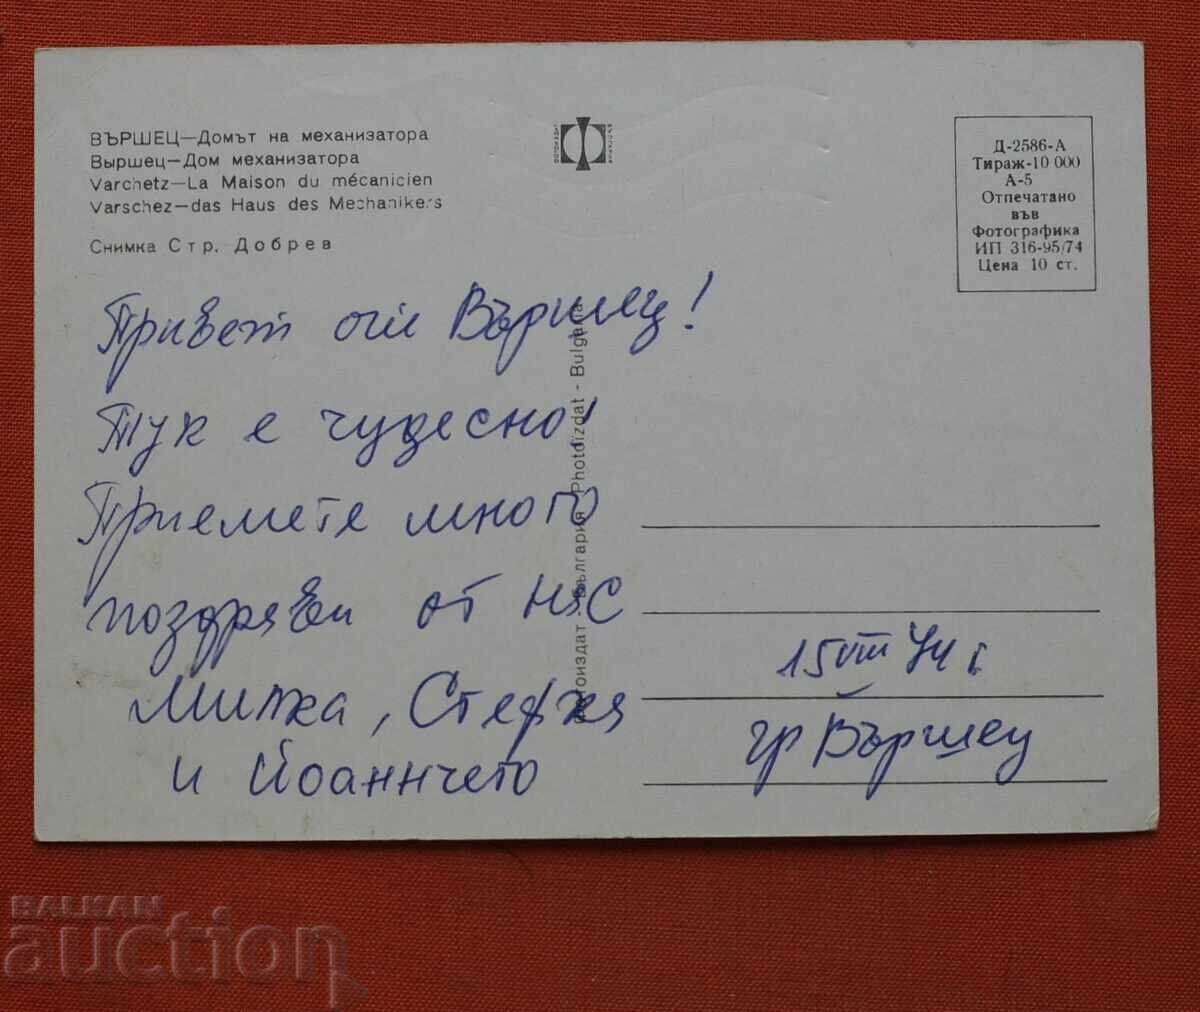 ВЪРШЕЦ—Домът на механизатора
Выршец—Дом механизатора
Varchetz—La Maison du mécanicien
Varschez—das Haus des Mechanikers
Снимка Стр. Добрев
Д-2586-А
Тираж-10 000
А-5
Отпечатано
във
Фотографика
ИП 316-95/74
Цена 10 ст.
Привет от Вършец!
Тук е чудесно!
Приемете много
поздрави от нас
Милка, Стефка
и Йоанничето
Фотоиздат - България Photoizdat - Bulgaria
15 VIII
гр Вършец
BALKAN
auction